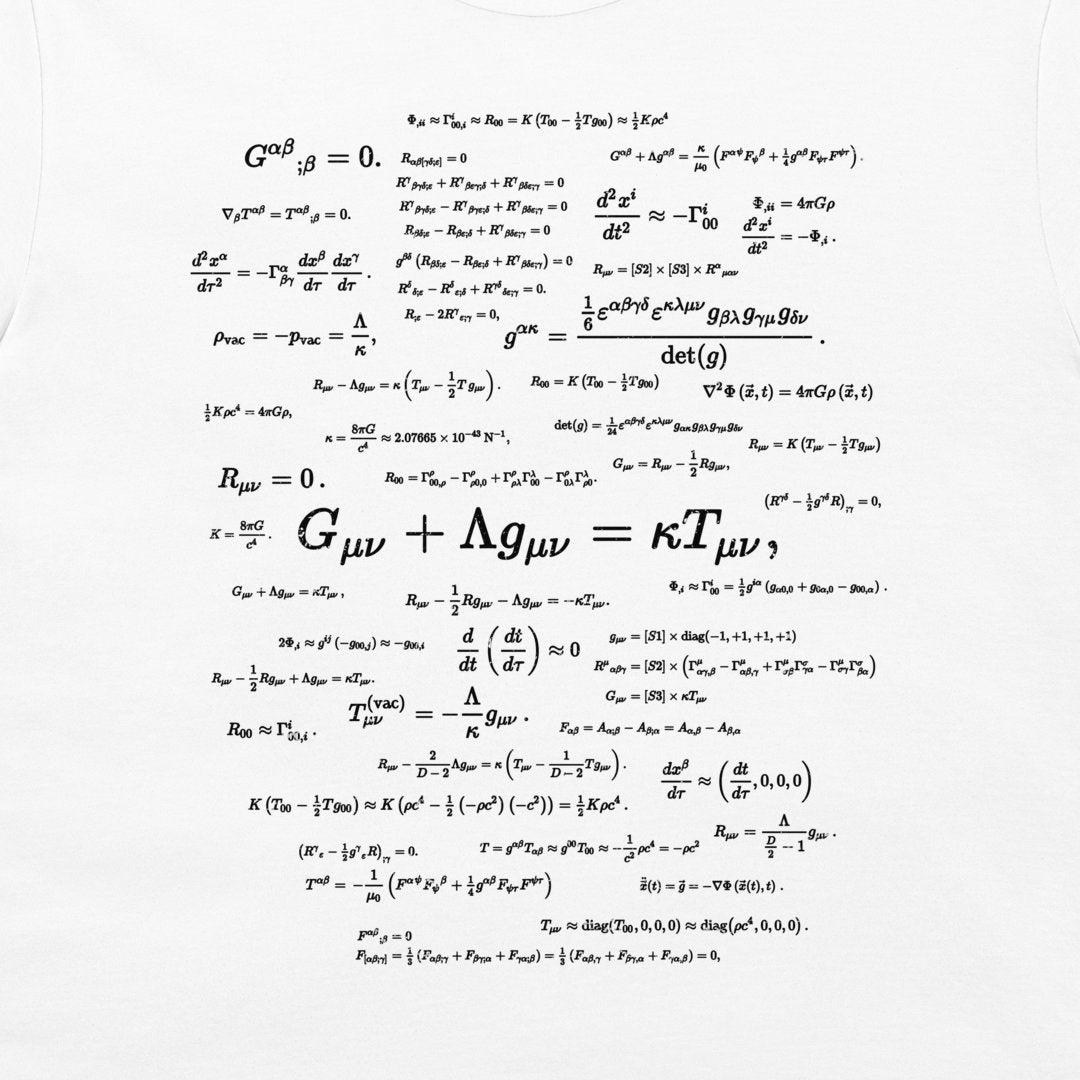 Φ,ii ≈ Γⁱ₀₀,ᵢ ≈ R₀₀ = K (T₀₀ − ½Tg₀₀) ≈ ½Kρc⁴
G^{αβ}_{;β} = 0.
R_{αβ[γδ;ε]} = 0
G^{αβ} + Λg^{αβ} = κ/μ₀ (F^{αψ}F_ψ^β + ¼g^{αβ}F_{ψτ}F^{ψτ}).
R^γ_{βγδ;ε} + R^γ_{βεγ;δ} + R^γ_{βδε;γ} = 0
∇_βT^{αβ} = T^{αβ}_{;β} = 0.
R^γ_{βγδ;ε} − R^γ_{βγε;δ} + R^γ_{βδε;γ} = 0
d²xⁱ/dt² ≈ −Γⁱ₀₀
Φ,ii = 4πGρ
R_{βδ;ε} − R_{βε;δ} + R^γ_{βδε;γ} = 0
d²xⁱ/dt² = −Φ,ᵢ.
d²x^α/dτ² = −Γ^α_{βγ} dx^β/dτ dx^γ/dτ.
g^{βδ} (R_{βδ;ε} − R_{βε;δ} + R^γ_{βδε;γ}) = 0
R_{μν} = [S2] × [S3] × R^α_{μαν}
R^δ_{δ;ε} − R^δ_{ε;δ} + R^{γδ}_{δε;γ} = 0.
R_{;ε} − 2R^γ_{ε;γ} = 0,
ρ_vac = −p_vac = Λ/κ,
g^{ακ} = (1/6 ε^{αβγδ}ε^{κλμν}g_{βλ}g_{γμ}g_{δν})/det(g).
R_{μν} − Λg_{μν} = κ (T_{μν} − ½T g_{μν}).
R₀₀ = K (T₀₀ − ½Tg₀₀)
∇²Φ (x⃗, t) = 4πGρ (x⃗, t)
½Kρc⁴ = 4πGρ,
κ = 8πG/c⁴ ≈ 2.07665 × 10⁻⁴³ N⁻¹,
det(g) = 1/24 ε^{αβγδ}ε^{κλμν}g_{ακ}g_{βλ}g_{γμ}g_{δν}
R_{μν} = K (T_{μν} − ½Tg_{μν})
R_{μν} = 0.
R₀₀ = Γ^ρ_{00,ρ} − Γ^ρ_{ρ0,0} + Γ^ρ_{ρλ}Γ^λ_{00} − Γ^ρ_{0λ}Γ^λ_{ρ0}.
G_{μν} = R_{μν} − ½Rg_{μν},
(R^{γδ} − ½g^{γδ}R)_{;γ} = 0,
K = 8πG/c⁴.
G_{μν} + Λg_{μν} = κT_{μν},
G_{μν} + Λg_{μν} = κT_{μν},
R_{μν} − ½Rg_{μν} − Λg_{μν} = −κT_{μν}.
Φ,ᵢ ≈ Γⁱ₀₀ = ½g^{iα} (g_{α0,0} + g_{0α,0} − g_{00,α}).
2Φ,ᵢ ≈ g^{ij} (−g_{00,j}) ≈ −g_{00,i}
d/dt (dt/dτ) ≈ 0
g_{μν} = [S1] × diag(−1, +1, +1, +1)
R^μ_{αβγ} = [S2] × (Γ^μ_{αγ,β} − Γ^μ_{αβ,γ} + Γ^μ_{σβ}Γ^σ_{γα} − Γ^μ_{σγ}Γ^σ_{βα})
R_{μν} − ½Rg_{μν} + Λg_{μν} = κT_{μν}.
G_{μν} = [S3] × κT_{μν}
T^{(vac)}_{μν} = −Λ/κ g_{μν}.
R₀₀ ≈ Γⁱ_{00,i}.
F_{αβ} = A_{α;β} − A_{β;α} = A_{α,β} − A_{β,α}
R_{μν} − 2/(D−2) Λg_{μν} = κ (T_{μν} − 1/(D−2) Tg_{μν}).
dx^β/dτ ≈ (dt/dτ, 0, 0, 0)
K (T₀₀ − ½Tg₀₀) ≈ K (ρc⁴ − ½ (−ρc²) (−c²)) = ½Kρc⁴.
R_{μν} = Λ/(D/2 − 1) g_{μν}.
(R^γ_ε − ½g^γ_εR)_{;γ} = 0.
T = g^{αβ}T_{αβ} ≈ g⁰⁰T₀₀ ≈ −1/c² ρc⁴ = −ρc²
T^{αβ} = −1/μ₀ (F^{αψ}F_ψ^β + ¼g^{αβ}F_{ψτ}F^{ψτ})
ẍ⃗(t) = g⃗ = −∇Φ (x⃗(t), t).
T_{μν} ≈ diag(T₀₀, 0, 0, 0) ≈ diag(ρc⁴, 0, 0, 0).
F^{αβ}_{;β} = 0
F_{[αβ;γ]} = ⅓ (F_{αβ;γ} + F_{βγ;α} + F_{γα;β}) = ⅓ (F_{αβ,γ} + F_{βγ,α} + F_{γα,β}) = 0,